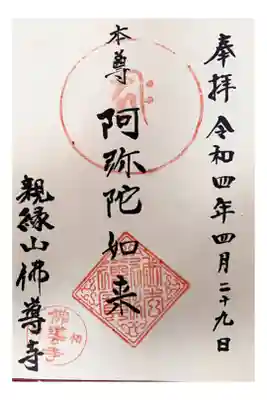 奉拝 令和四年四月二十九日
本尊
阿弥陀如来
親縁山佛導寺